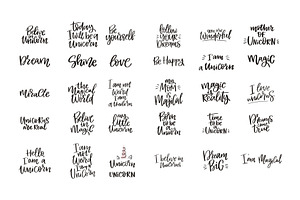 Believe
Unicorn
Today,
I will be a
Unicorn
Be
yourself
Follow
your
Dreams
you are
Wonderful
mother
OF
UNICORN
Dream
Shine
love
Be Happy
I am a
UNICORN
Magic
miracle
the
Magical
World
I am not
Weird
I am a
Unicorn
my
Mom is
Magical
magic
is
Reality
I love
unicorns
Unicorns
are Real
Believe
in
Magic
little
Unicorn
Born
to be
Unicorn
Time
to be
Unicorn
Dreams
come
True
Hello
I am a
Unicorn
I am
not
Weird
I am a
Unicorn
Unicorn
UNICORN
I believe in
Unicorns
Dream
BIG
I am Magical